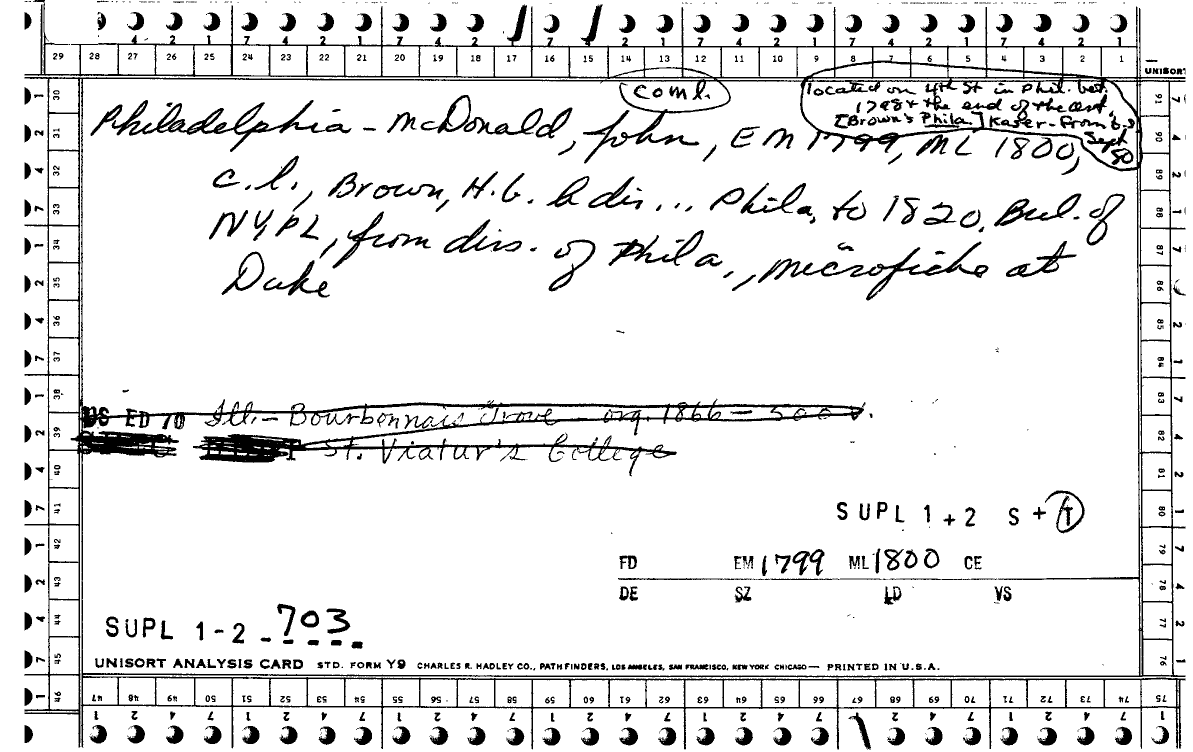 7 4 2 1 7 4 2 1 7 4 2 1 7 4 2 1 7 4 2 1 7 4 2 1
29 28 27 26 25 24 23 22 21 20 19 18 17 16 15 14 13 12 11 10 9 8 7 6 5 4 3 2 1
UNISORT
coml.
located on 4th St in Phil. bet.
1798 & the end of the cent.
[Brown's Phila] Kaser - From b.s.
Sept 80
Philadelphia - McDonald, John, EM 1799, ML 1800,
c.l., Brown, H.G. A dir... Phila, to 1820, Bul. of
NYPL, from dirs. of Phila., microfiche at
Duke
US ED 70 Ill. - Bourbonnais Grove - org. 1866 - 500 v.
St. Viatur's College
SUPL 1+2 S + T
FD EM 1799 ML 1800 CE
DE SZ LD VS
SUPL 1-2 - 703
UNISORT ANALYSIS CARD STD. FORM Y9 CHARLES R. HADLEY CO., PATHFINDERS, LOS ANGELES, SAN FRANCISCO, NEW YORK CHICAGO — PRINTED IN U.S.A.
47 48 49 50 51 52 53 54 55 56 57 58 59 60 61 62 63 64 65 66 67 68 69 70 71 72 73 74 75